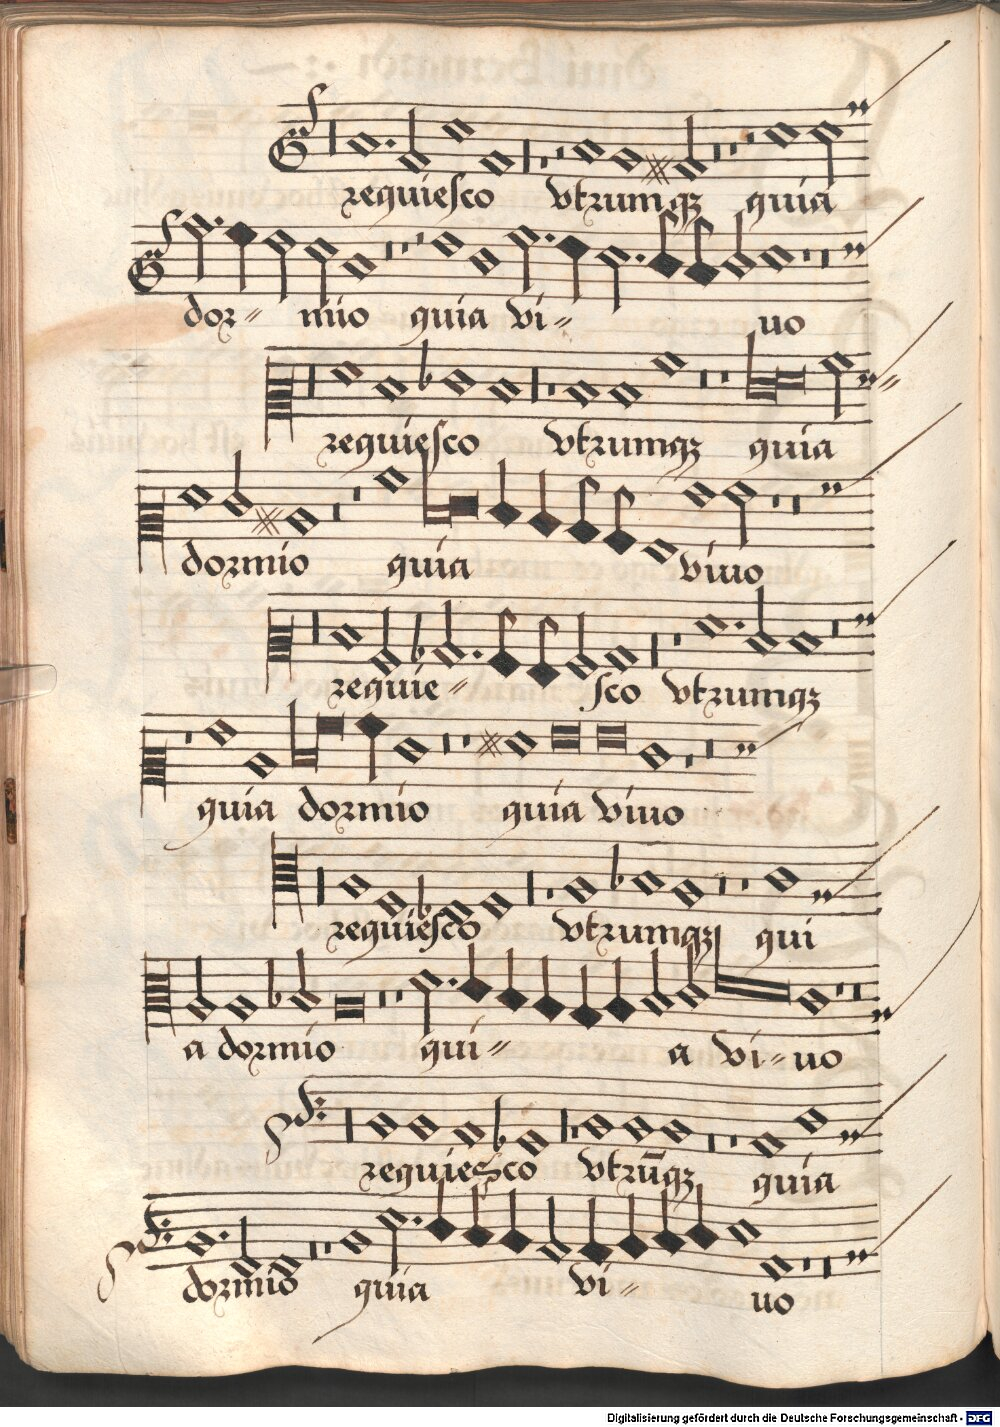 requiesco vtrumqꝫ quia
dor⸗ mio quia vi⸗ uo
requiesco vtrumqꝫ quia
dormio quia viuo
requie⸗ sco vtrumqꝫ
quia dormio quia viuo
requiesco vtrumqꝫ qui
a dormio qui⸗ a vi⸗ uo
requiesco vtrūqꝫ quia
dormio quia vi⸗ uo
Digitalisierung gefördert durch die Deutsche Forschungsgemeinschaft - DFG